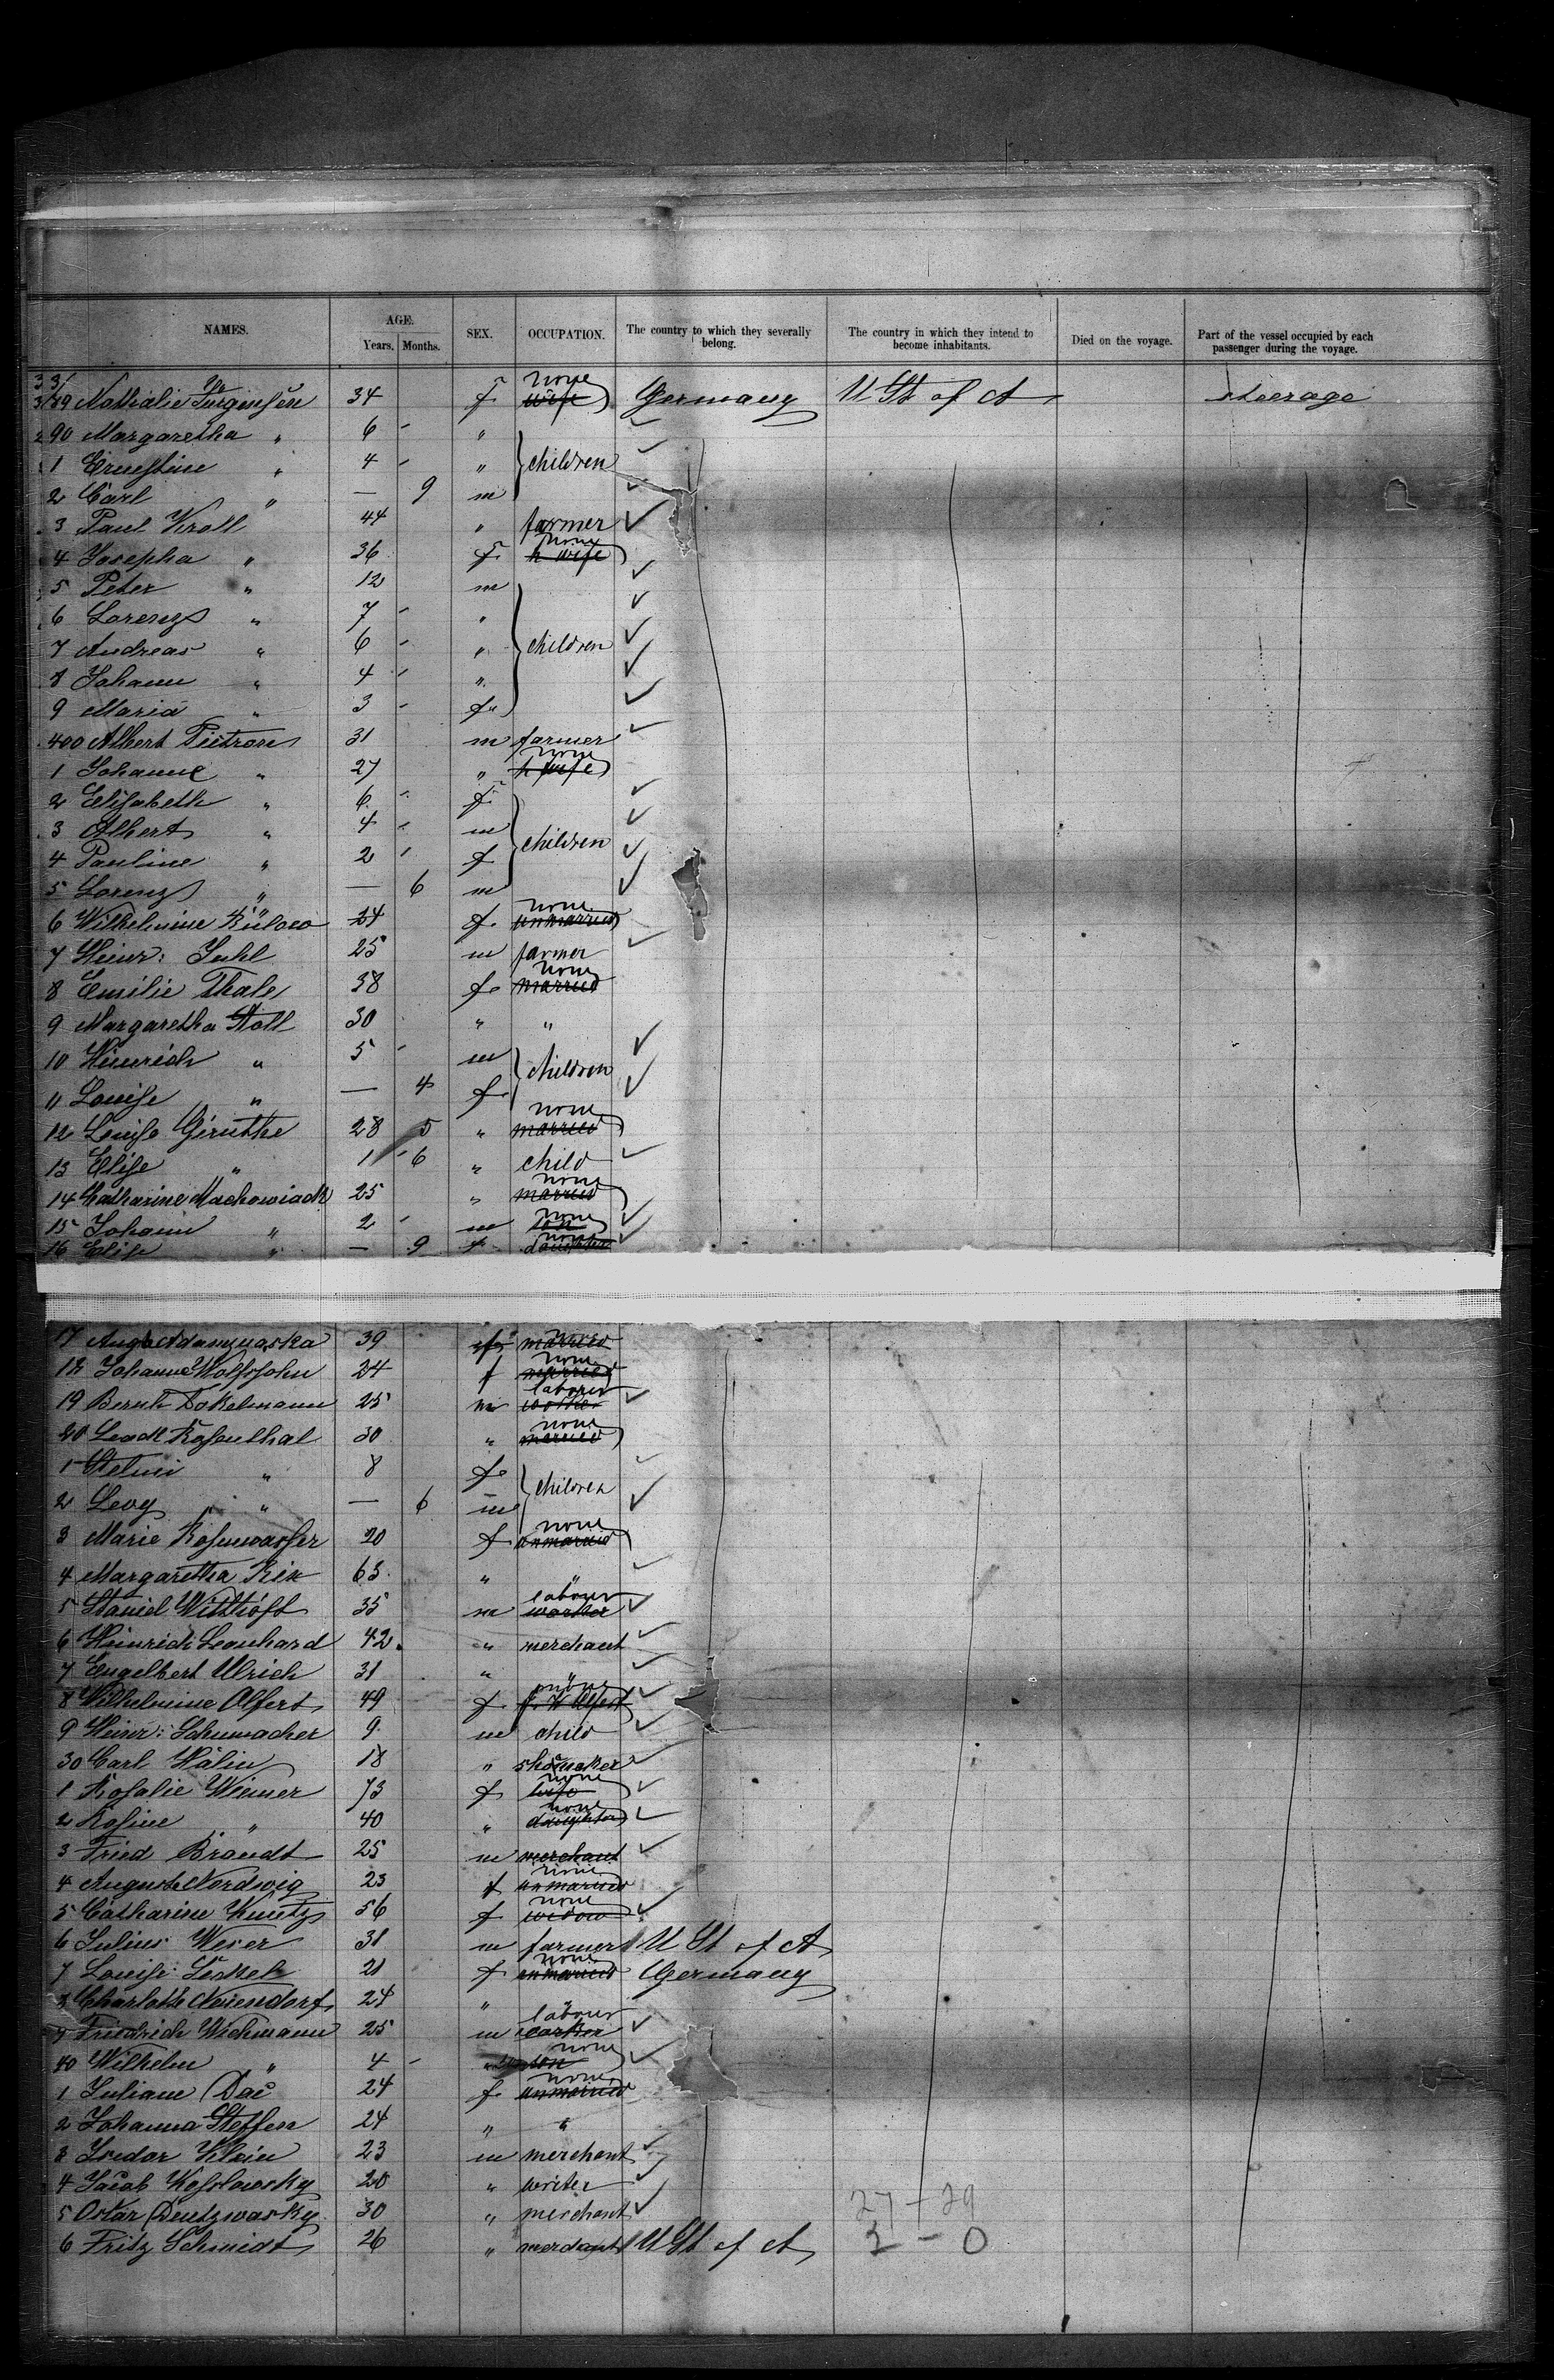 NAMES. AGE. Years. Months. SEX. OCCUPATION. The country to which they severally belong. The country in which they intend to become inhabitants. Died on the voyage. Part of the vessel occupied by each passenger during the voyage.
389 Nathalie Jurgensen 34 f none wife Germany U St of A steerage
90 Margaretha " 6 "
1 Ernestine " 4 " children
2 Carl " — 9 m
3 Paul Kroll 44 " farmer
4 Josepha " 36 f none h wife
5 Peter " 12 m
6 Lorenz " 7 "
7 Andreas " 6 " children
8 Johann " 4 "
9 Maria " 3 f
400 Albert Pietron 31 m farmer
1 Johanne " 27 " none h wife
2 Elisabeth " 6 f
3 Albert " 4 m children
4 Pauline " 2 f
5 Lorenz " — 6 m
6 Wilhelmine Bülow 24 f none unmarried
7 Heinr: Juhl 25 m farmer
8 Emilie Thale 38 f none married
9 Margaretha Stoll 30 " "
10 Hinrich " 5 m children
11 Louise " — 4 f
12 Louise Giruthe 28 5 " none married
13 Elise " 1 6 " child
14 Catharine Machowiack 25 " none married
15 Johann " 2 m none son
16 Elise " — 9 f none daughter
17 39 married
18 Johanne Wolfssohn 24 f none married
19 Bernh Dokelmann 25 m labourer worker
20 Rosenthal 30 " none married
1 " 8 f children
2 Levy " — 6 m
3 Marie Rosenwasser 20 f none unmarried
4 Margaretha Rix 63 " "
5 Daniel Witthöft 35 m labourer worker
6 Heinrich Leonhard 42 " merchant
7 Engelbert Ulrich 31 " "
8 Wilhelmine Alfert 49 f
9 Heinr: Schumacher 9 m child
30 Carl 18 " shomaker
1 Rosalie Wiemer 73 f none wife
2 Rosine " 40 " none daughter
3 Fried Brandt 25 m merchant
4 Auguste Nordwig 23 f none unmarried
5 Catharine Kuntz 56 f none widow
6 Julius Weser 31 m farmer U St of A
7 Louise 21 f none unmarried Germany
8 Charlotte Neuendorf 24 " "
9 Friedrich Wichmann 25 m labourer worker
40 Wilhelm " 4 " none son
1 Juliane Daè 24 f none unmarried
2 Johanna Steffen 24 " "
3 Isidor Klein 23 m merchant
4 Jacob Koslowsky 20 " writer
5 Oskar Deutzwasky 30 " merchant 27 – 29
6 Fritz Schmidt 26 " merchant U St of A 2 – 0